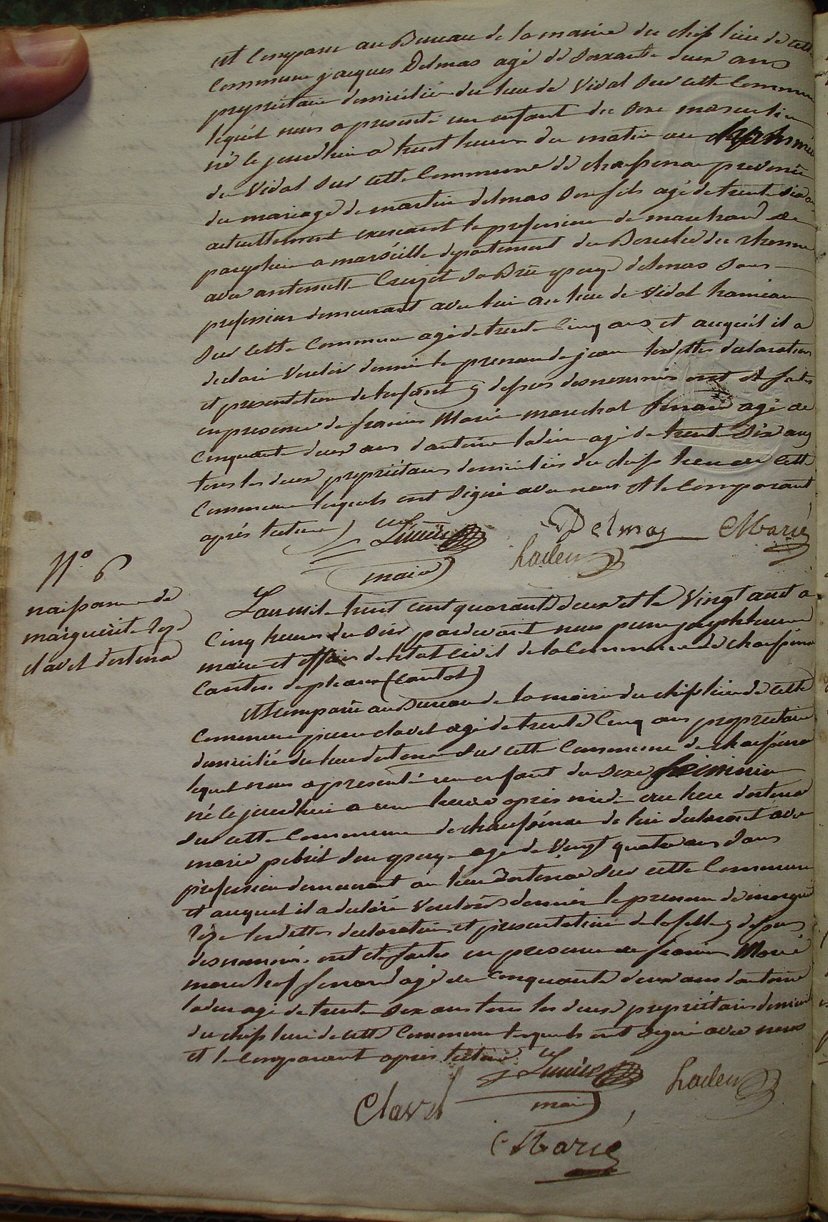 est comparu au Bureau de la mairie du chef lieu de cette
Commune jacques Delmas agé de Soixante deux ans
propriétaire domicilié du lieu de Vidal Sur cette Commune
lequel nous a présenté un enfant du Sexe masculin
né le jourdhui a huit heures du matin au
de Vidal Sur cette Commune de chaussenac provenu
du mariage de martin delmas Son fils agé de trente
actuellement exercant la profession de marchand de
parapluie a marseille département du Bouches du rhonne
avec antoinette Cruzet Sa Bru epouse delmas Sans
profession demeurant avec lui au lieu de Vidal hameau
Sur cette Commune agé de trente Cinq ans et auquel il a
déclaré Vouloir donner le prenom de jean lesdittes declaration
et présentation de lenfant desnommé ont été faites
en presence de francois Marié marechal ferrand agé de
Cinquante deux ans dantoine laden agé de trente Six ans
tous les deux propriétaires domiciliés du chef lieu de cette
Commune lesquels ont Signé avec nous et le Comparant
après lecture
Delmas Marié
laden
maire
N° 6
naissance de
marguerite
clavel dostenac
Lan mil huit cent quarante deux et le Vingt aout a
Cinq heures du Soir pardevant nous pierre joseph
maire et officier de letat Civil de la Commune de chaussenac
Canton de pleaux (Cantal)
est comparu au Bureau de la mairie du chef lieu de cette
Commune pierre clavel agé de trente Cinq ans propriétaire
domicilié du lieu dostenac Sur cette Commune de chaussenac
lequel nous a présenté un enfant du Sexe féminin
né le jourdhui a une heure après midi au lieu dostenac
Sur cette Commune de chaussenac de lui declarant avec
marie Son epouse agé de Vingt quatre ans Sans
profession demeurant au lieu dostenac Sur cette Commune
et auquel il a declaré Vouloir donner le prenom de
lesdittes declaration et présentation de la fille
desnommé ont été faites en presence de francois Marié
marechal ferrand agé de Cinquante deux ans dantoine
laden agé de trente Six ans tous les deux propriétaires
du chef lieu de cette Commune lesquels ont Signé avec nous
et le Comparant après lecture
Clavel
maire
laden
Marié